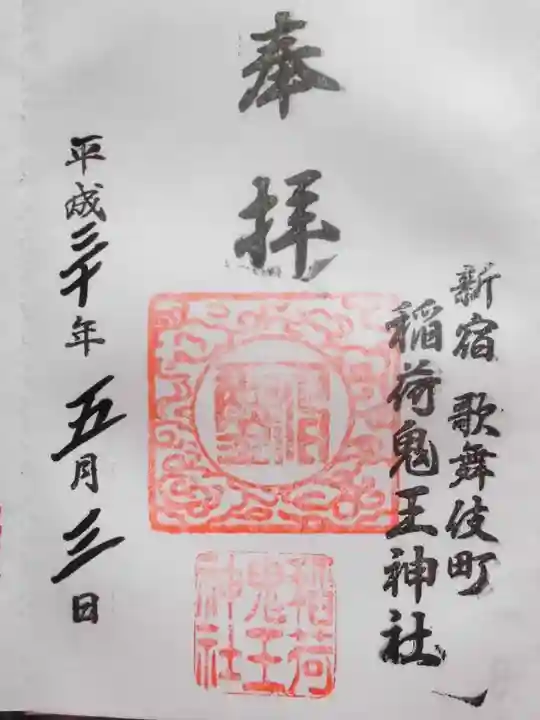 新宿 歌舞伎町
稲荷鬼王神社
奉拝
平成三十年五月三日
稲荷
鬼王
神社